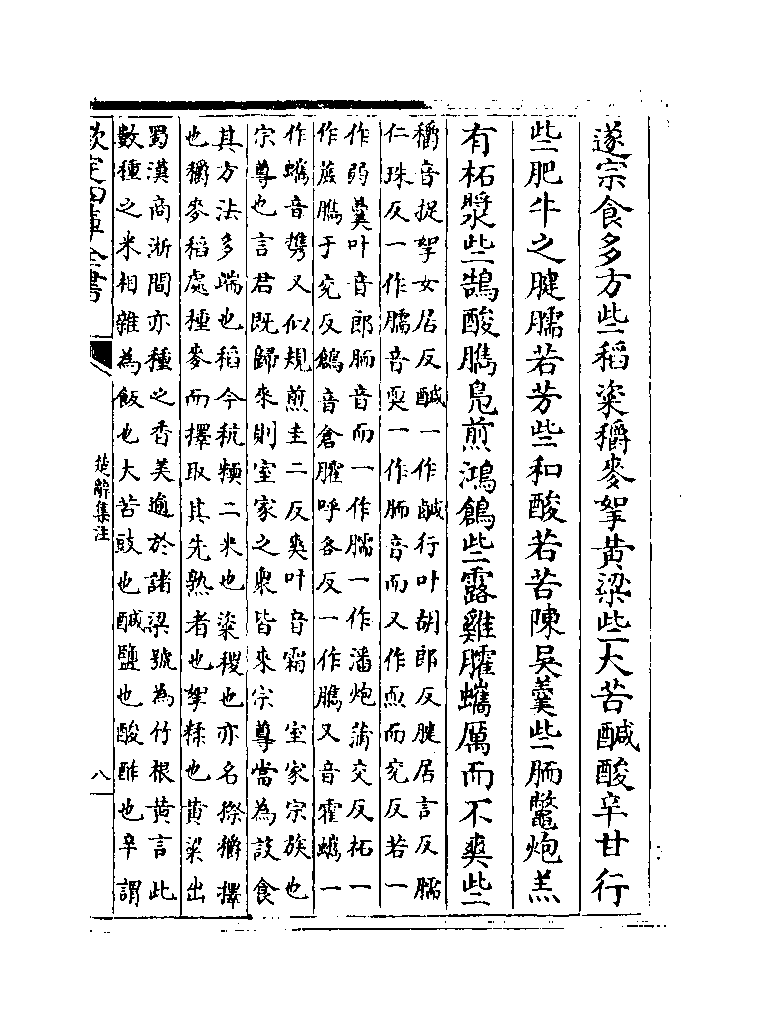 遂宗食多方些稻粢穱麥挐黃粱些大苦醎酸辛甘行
些肥牛之腱臑若芳些和酸若苦陳吳羹些胹鼈炮羔
有柘漿些鵠酸臇鳧煎鴻鶬些露雞臛蠵厲而不爽些
穱音捉挐女居反醎一作鹹行叶胡郎反腱居言反臑
仁珠反一作臑音耎一作胹音而又作㶡而兖反若一
作弱羹叶音郎胹音而一作臑一作濡炮蒲交反柘一
作蔗臇子兖反鶬音倉臛呼各反一作臇又音霍蠵一
作蠵音攜又以規煎圭二反爽叶音霜 室家宗族也
宗尊也言君既歸來則室家之衆皆來宗尊當為設食
其方法多端也稻今秔稬二米也粢稷也亦名穄穱擇
也穱麥稻處種麥而擇取其先熟者也挐糅也黃粱出
蜀漢商浙間亦種之香美逾於諸粱號為竹根黃言此
數種之米相雜為飯也大苦豉也醎鹽也酸酢也辛謂
欽定四庫全書
楚辭集注
八